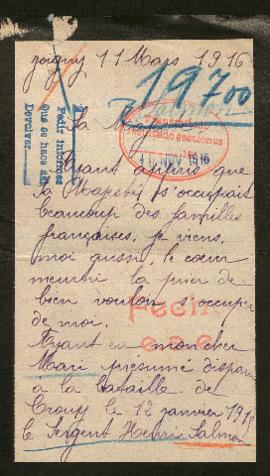 Joigny 11 Mars 1916
19700
Sa Majesté
Tramitado
16 NOV. 1916
Pedir informes
Que se hace así
Devolver
Ayant appris que
sa Majesté s'occupait
beaucoup des familles
françaises, je viens,
moi aussi, le cœur
meurtri la prier de
bien vouloir s'occuper
de moi.
Ayant eu mon cher
Mari présumé disparu
à la bataille de
Crouy le 12 janvier 1915
le Sergent Henri Salmon